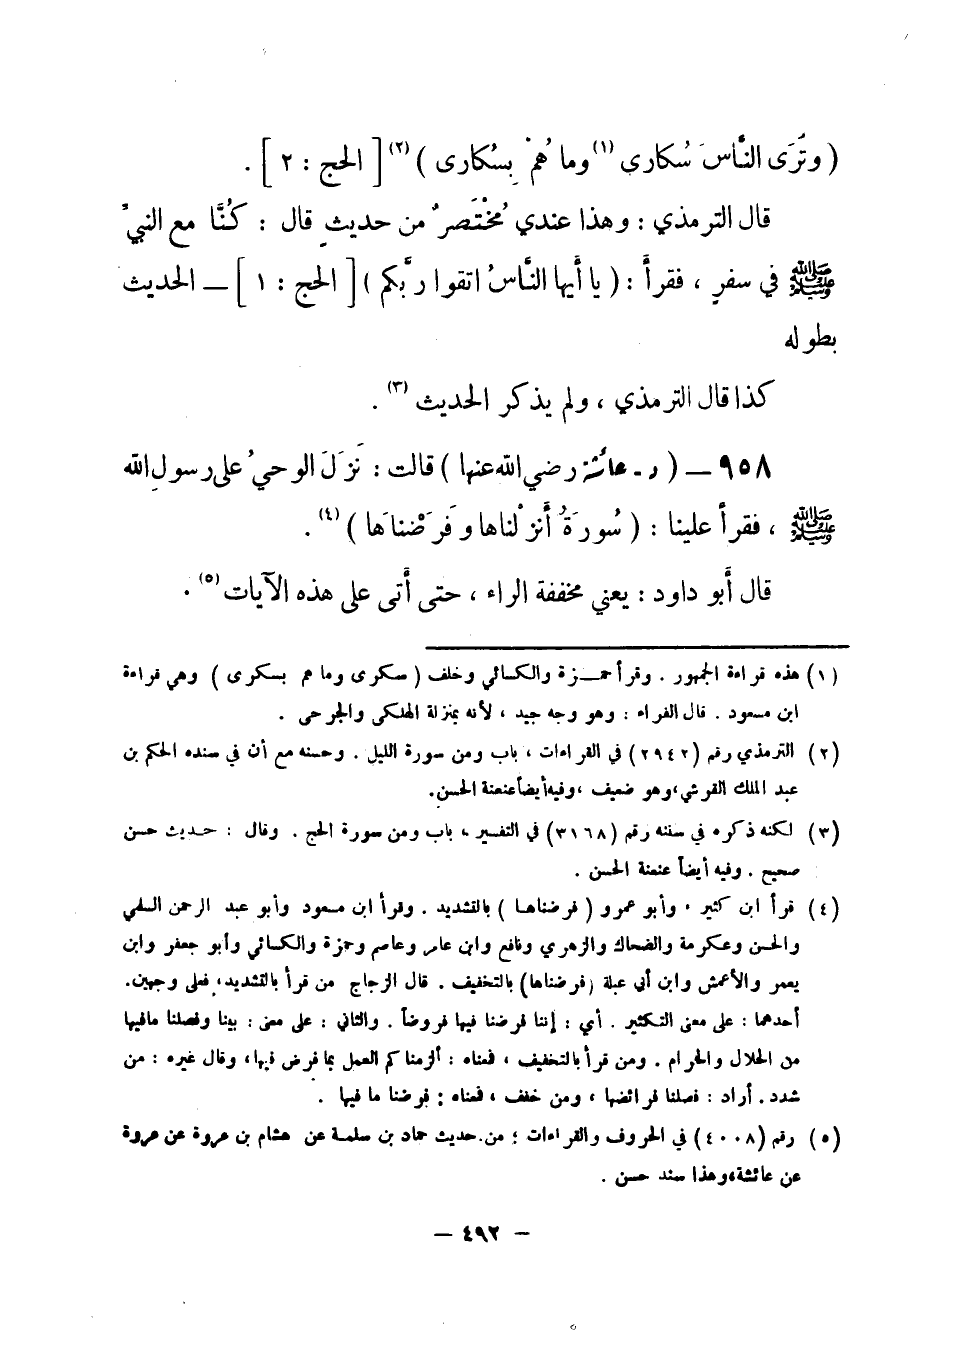 ( وتَرَى النَّاسَ سُكارى (١) وما هُمْ بِسُكارى ) (٢) [ الحج : ٢ ] .
قال الترمذي : وهذا عندي مُخْتَصرٌ من حديثِ قال : كُنَّا مع النبيِّ
ﷺ في سفرٍ ، فقرأَ : ( يا أيها النَّاسُ اتقوا ربَّكم ) [ الحج : ١ ] ــ الحديث
بطوله
كذا قال الترمذي ، ولم يذكر الحديث (٣) .
٩٥٨ ــ ( ر ـ عائشة رضي الله عنها ) قالت : نَزَلَ الوحيُ على رسولِ الله
ﷺ ، فقرأ علينا : ( سُورَةُ أنزَلْناها وفَرَضْناَها ) (٤) .
قال أبو داود : يعني مخففة الراء ، حتى أتى على هذه الآيات (٥) .
(١) هذه قراءة الجمهور . وقرأ حمـزة والكسائي وخلف ( سكرى وما هم بسكرى ) وهي قراءة
ابن مسعود . قال الفراء : وهو وجه جيد ، لأنه بمنزلة الهلكى والجرحى .
(٢) الترمذي رقم (٢٩٤٢) في القراءات ، باب ومن سورة الليل . وحسنه مع أن في سنده الحكم بن
عبد الملك القرشي ، وهو ضعيف ، وفيه أيضاً عنعنة الحسن .
(٣) لكنه ذكره في سننه رقم (٣١٦٨) في التفسير ، باب ومن سورة الحج . وقال : حـديث حسن
صحيح . وفيه أيضاً عنعنة الحسن .
(٤) قرأ ابن كثير ، وأبو عمرو ( فرضناها ) بالتشديد . وقرأ ابن مسعود وأبو عبد الرحمن السلمي
والحسن وعكرمة والضحاك والزهري ونافع وابن عامر وعاصم وحمزة والكسائي وأبو جعفر وابن
يعمر والأعمش وابن أبي عبلة (فرضناها) بالتخفيف . قال الزجاج من قرأ بالتشديد ، فعلى وجهين .
أحدهما : على معنى التكثير . أي : إننا فرضنا فيها فروضاً . والثاني : على معنى : بينا وفصلنا ما فيها
من الحلال والحرام . ومن قرأ بالتخفيف ، فمعناه : ألزمناكم العمل بما فرض فيها ، وقال غيره : من
شدد . أراد : فصلنا فرائضها ، ومن خفف ، فمعناه : فرضنا ما فيها .
(٥) رقم (٤٠٠٨) في الحروف والقراءات ؛ من حديث حماد بن سلمة عن هشام بن عروة عن عروة
عن عائشة ، وهذا سند حسن .
ــ ٤٩٢ ــ